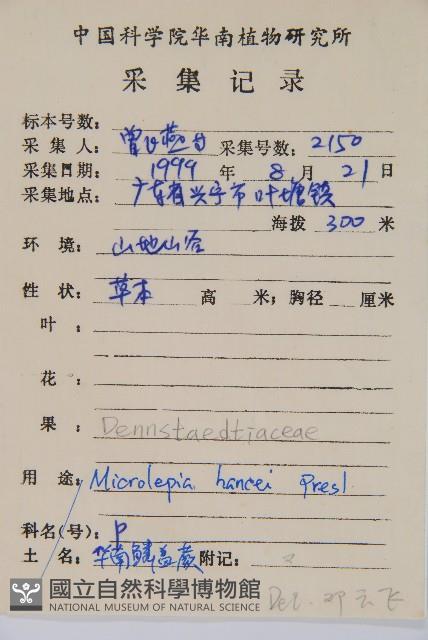 中国科学院华南植物研究所
采集记录
标本号数：
采集人：曾 采集号数：2150
采集日期：1999 年 8 月 21 日
采集地点：广东省兴宁市叶塘镇
海拨 300 米
环境：山地山谷
性状：草本 高 米；胸径 厘米
叶：
花：
果：Dennstaedtiaceae
用途：Microlepia hancei Presl
科名(号)：P
土名：华南鳞盖蕨 附记：
國立自然科學博物館
NATIONAL MUSEUM OF NATURAL SCIENCE
Det. 邓云飞